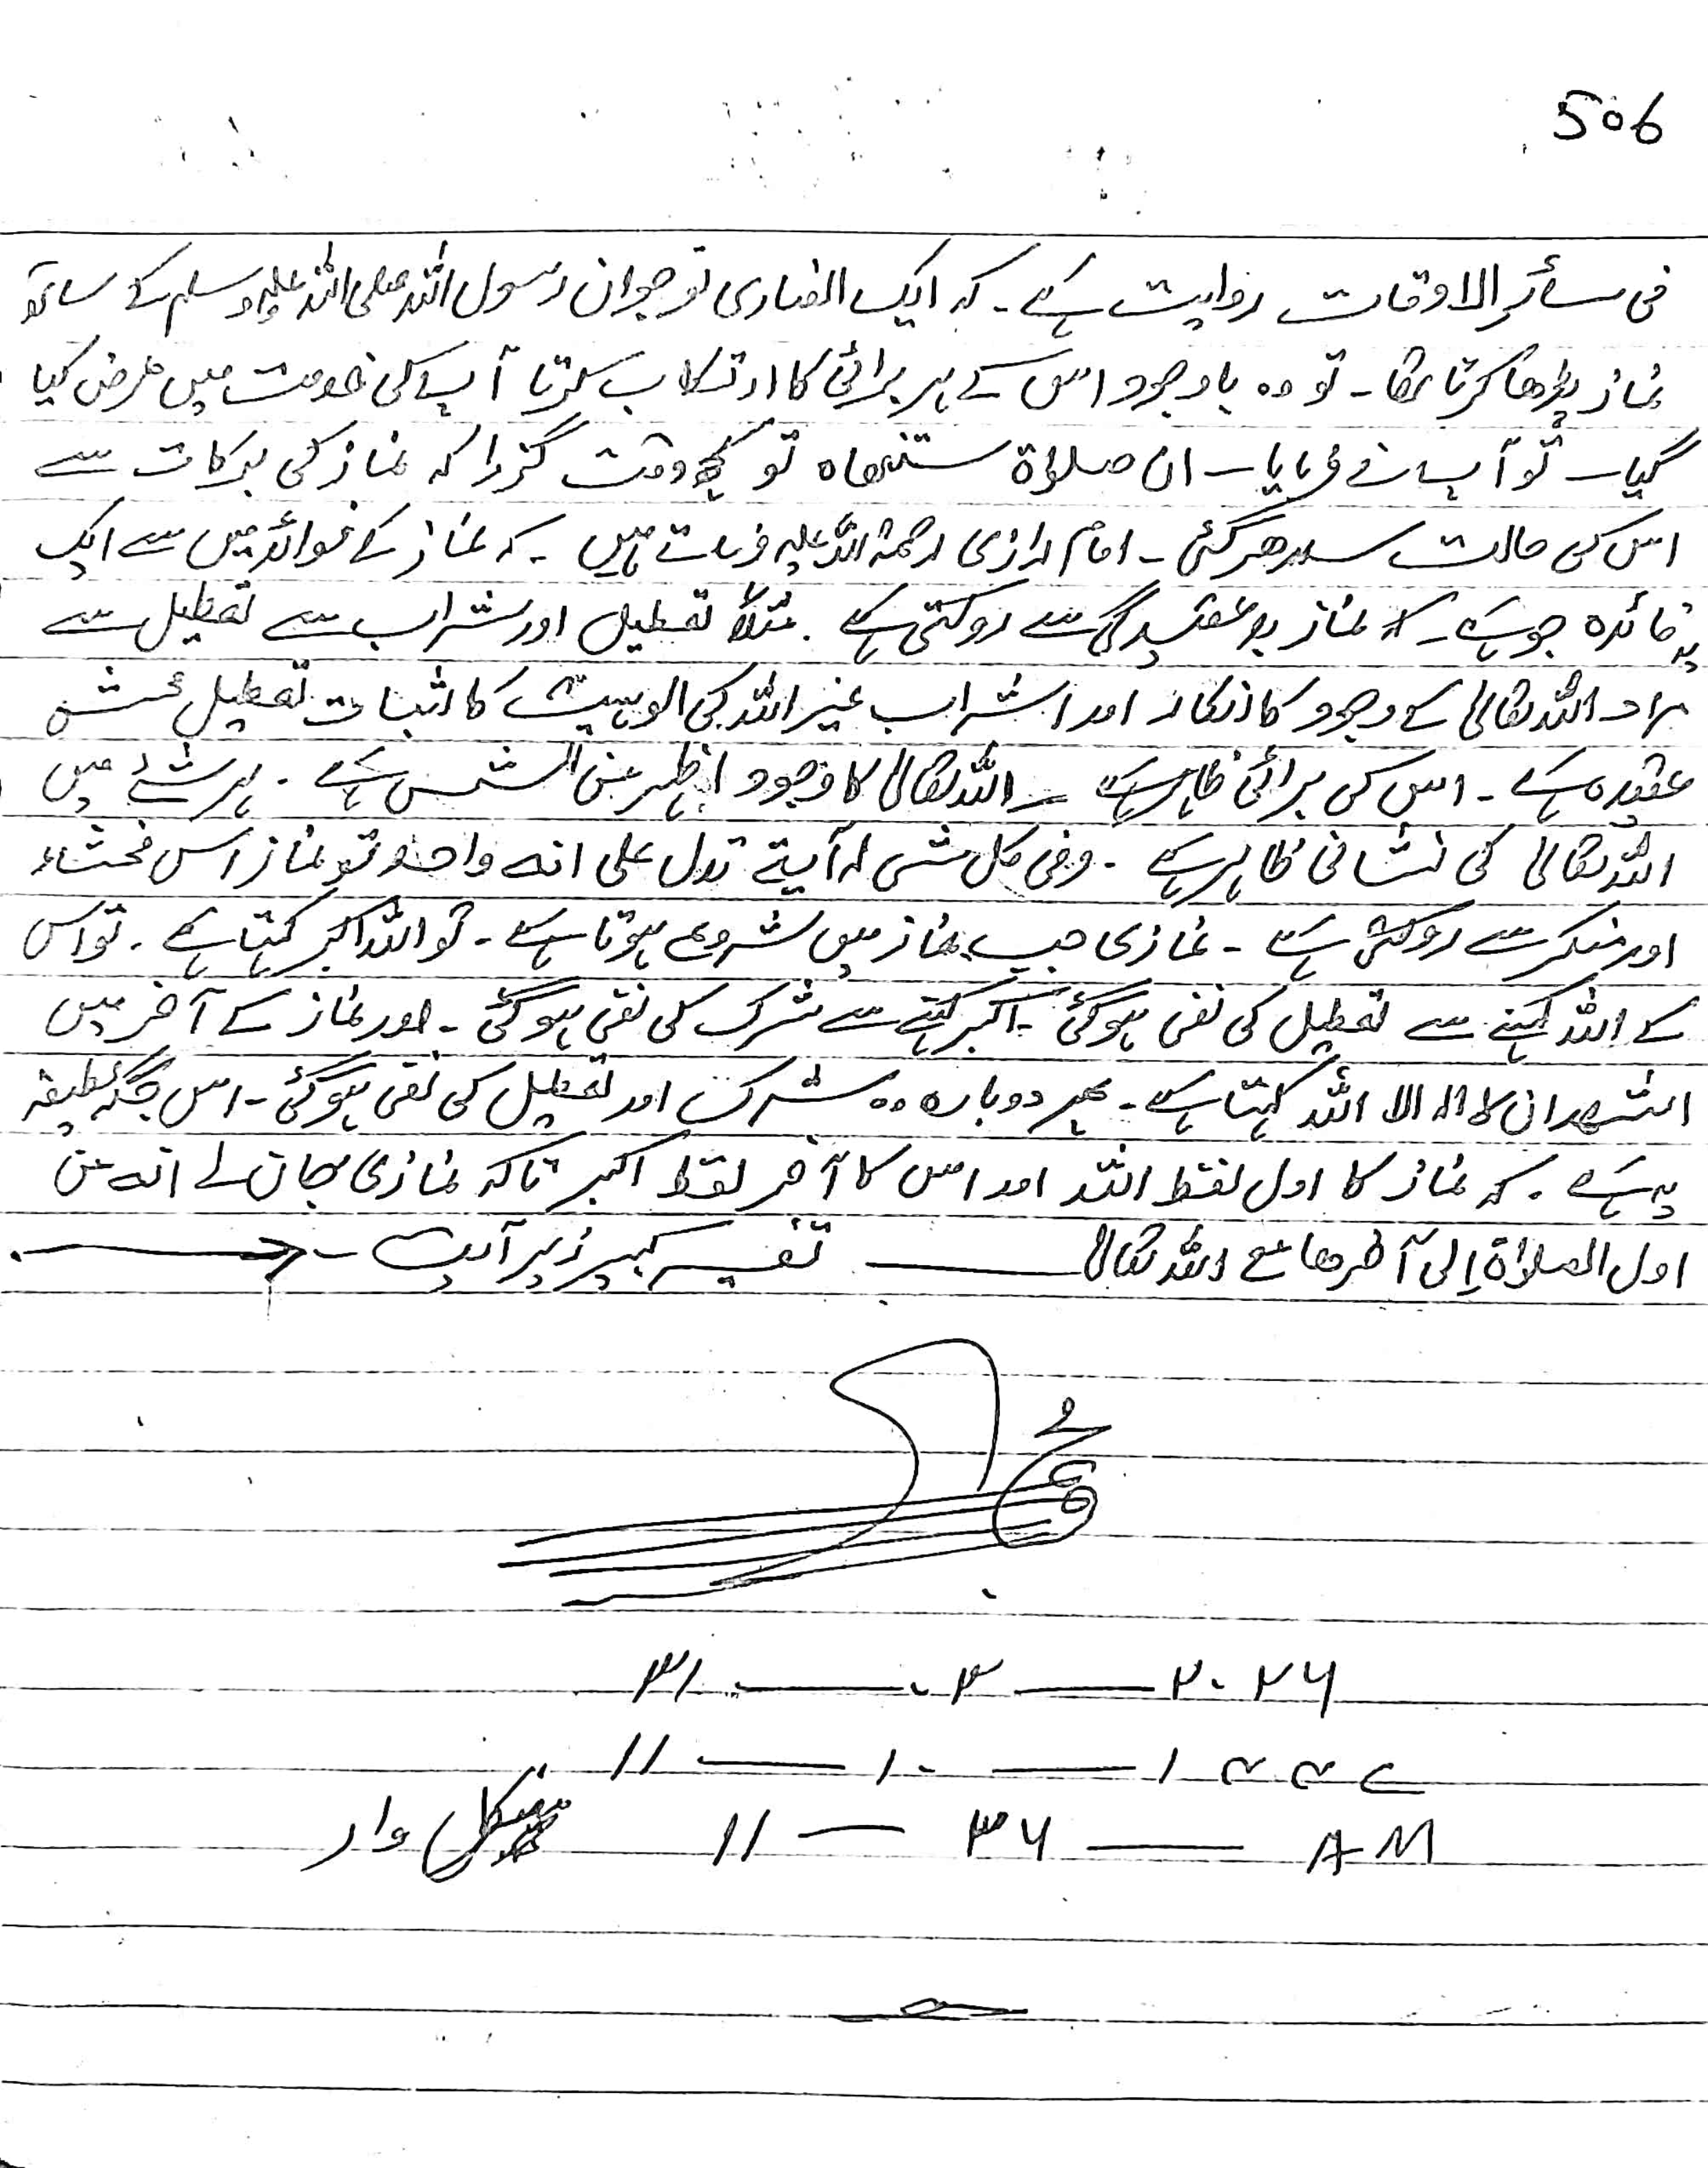 506
فی سائر الاوقات روایت ہے۔ کہ ایک انصاری نوجوان رسول اللہ صلی اللہ علیہ وسلم کے ساتھ
نماز پڑھا کرتا تھا۔ تو وہ باوجود اس کے ہر برائی کا ارتکاب کرتا آپ کی خدمت میں عرض کیا
گیا۔ تو آپ نے فرمایا۔ ان صلواۃ ستنھاہ تو کچھ وقت گزرا کہ نماز کی برکات سے
اس کی حالت سدھر گئی۔ امام رازی رحمۃ اللہ علیہ فرماتے ہیں۔ کہ نماز کے فوائد میں سے ایک
یہ فائدہ جو ہے۔ کہ نماز بد عقیدگی سے روکتی ہے۔ مثلاً تعطیل اور شراب سے تعطیل سے
مراد اللہ تعالیٰ کے وجود کا انکار اور اشراب غیر اللہ کی الوہیت کا اثبات تعطیل فحش
عقیدہ ہے۔ اس کی برائی ظاہر ہے۔ اللہ تعالیٰ کا وجود اظہر من الشمس ہے۔ ہر شئے میں
اللہ تعالیٰ کی نشانی ظاہر ہے۔ وفی کل شی لہ آیۃ تدل علی انہ واحد تو نماز اس فحشاء
اور منکر سے روکتی ہے۔ نمازی جب نماز میں شروع ہوتا ہے۔ تو اللہ اکبر کہتا ہے۔ تو اس
کے اللہ کہنے سے تعطیل کی نفی ہوگئی۔ اکبر کہنے سے شرک کی نفی ہوگئی۔ اور نماز کے آخر میں
اشھد ان لا الہ الا اللہ کہتا ہے۔ پھر دوبارہ وہ شرک اور تعطیل کی نفی ہوگئی۔ اس جگہ لطیفہ
یہ ہے۔ کہ نماز کا اول لفظ اللہ اور اس کا آخر لفظ اکبر تاکہ نمازی جان لے انہ من
اول الصلواۃ إلی آخرھا مع اللہ تعالیٰ ــــــ تفسیر کبیر زیر آیت۔
۳۱ ــــ ۳ ــــ ۲۰۲۶
۱۱ ــــ ۱۰ ــــ ۱۴۴۷
۱۱ — ۳۶ — AM منگل وار